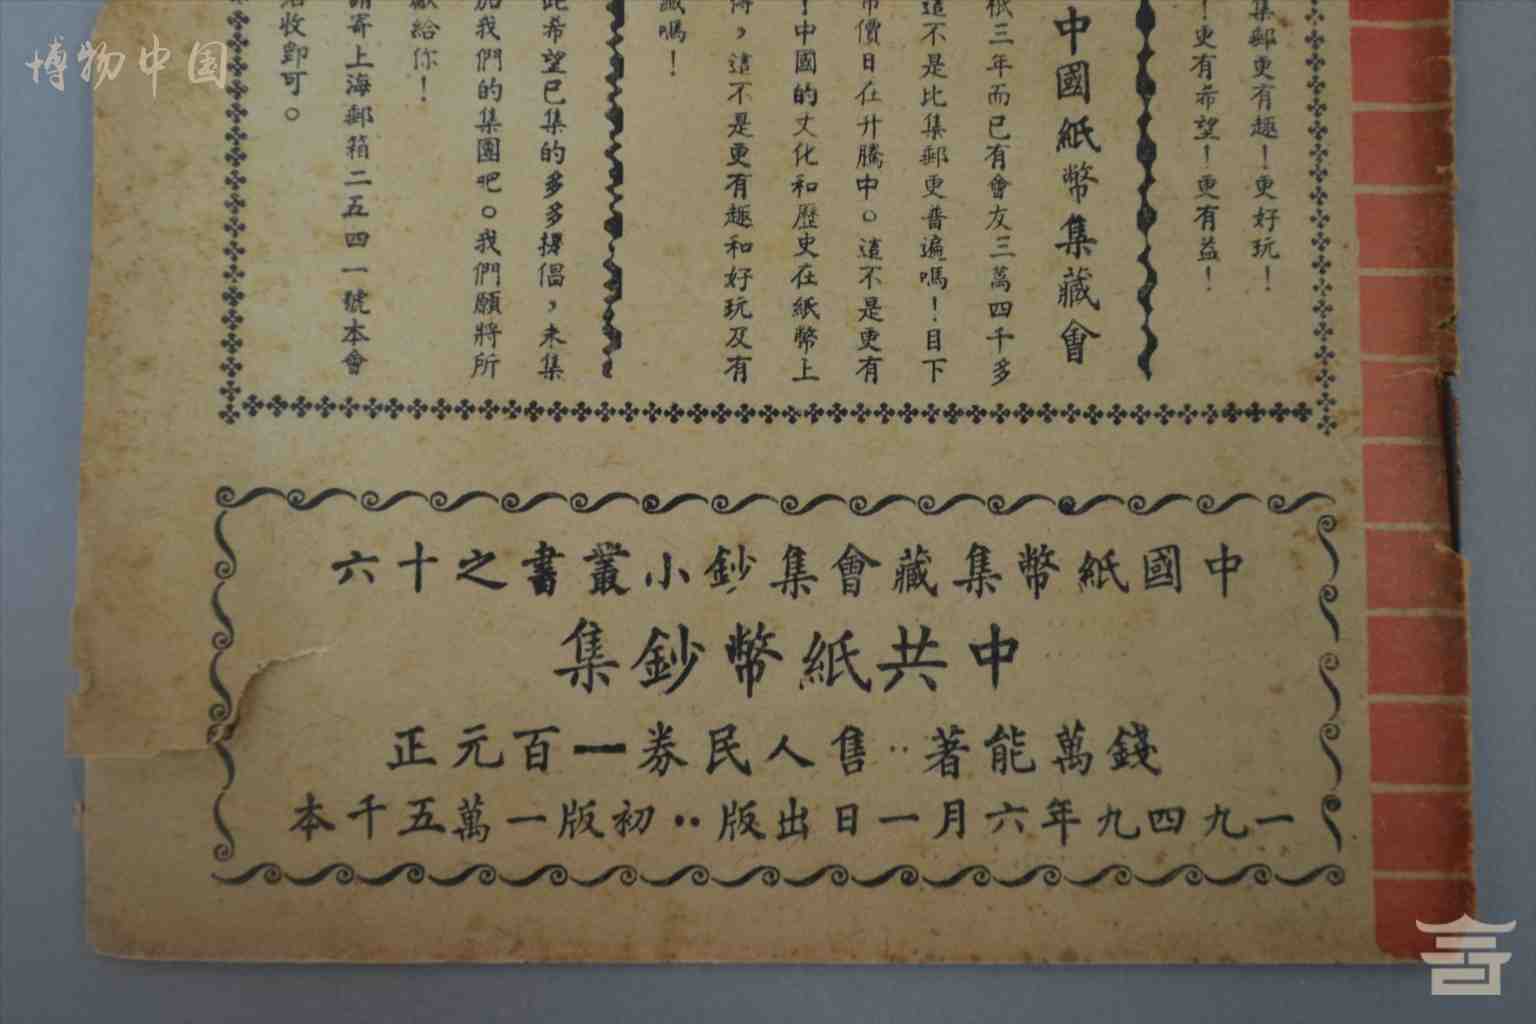 博物中国
集郵更有趣！更好玩！
！更有希望！更有益！
中國紙幣集藏會
祇三年而已有會友三萬四千多
這不是比集郵更普遍嗎！目下
幣價日在升騰中。這不是更有
！中國的文化和歷史在紙幣上
，這不是更有趣和好玩及有
識嗎！
此希望已集的多多提倡，未集
加我們的集團吧。我們願將所
獻給你！
請寄上海郵箱二五四一號本會
收即可。
中國紙幣集藏會集鈔小叢書之十六
中共紙幣鈔集
錢萬能著··售人民券一百元正
一九四九年六月一日出版··初版一萬五千本